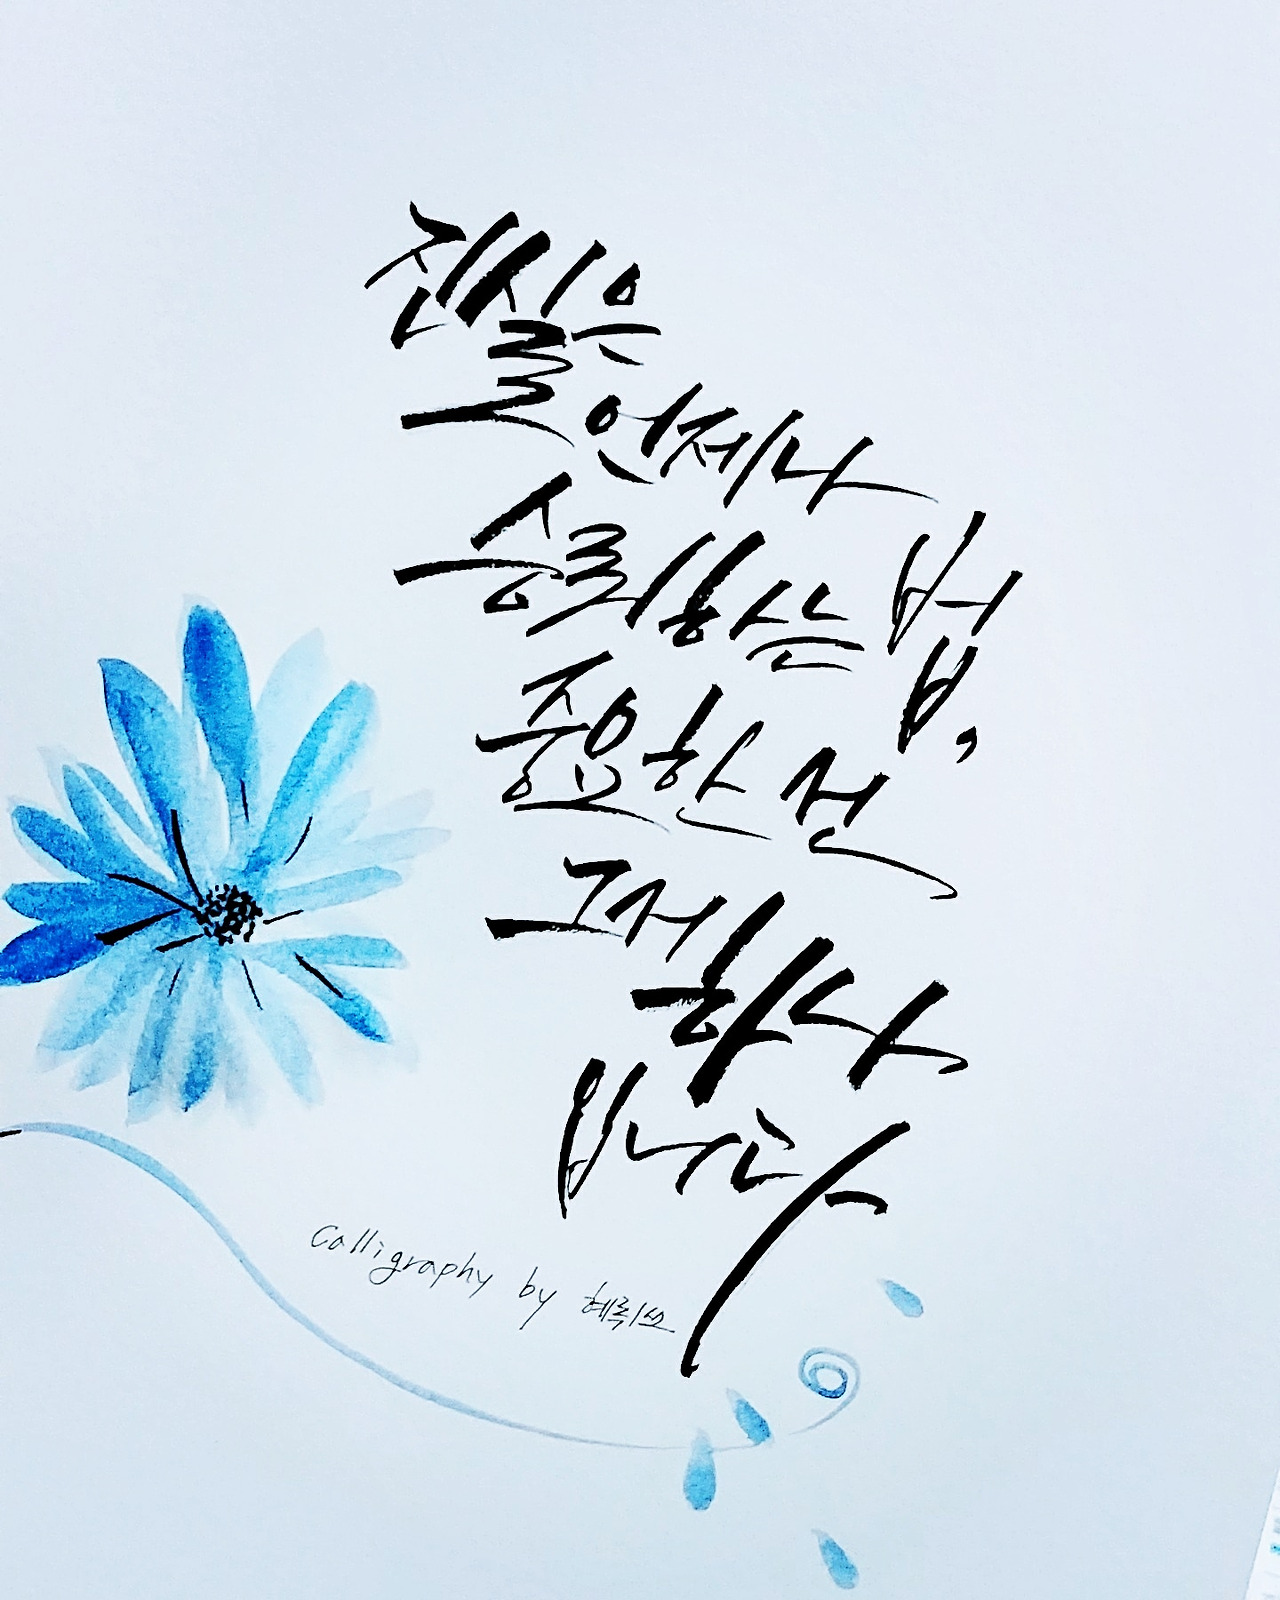 진실은
언제나
승리하는 법,
중요한 건
그저 하나
입니다
Calligraphy by